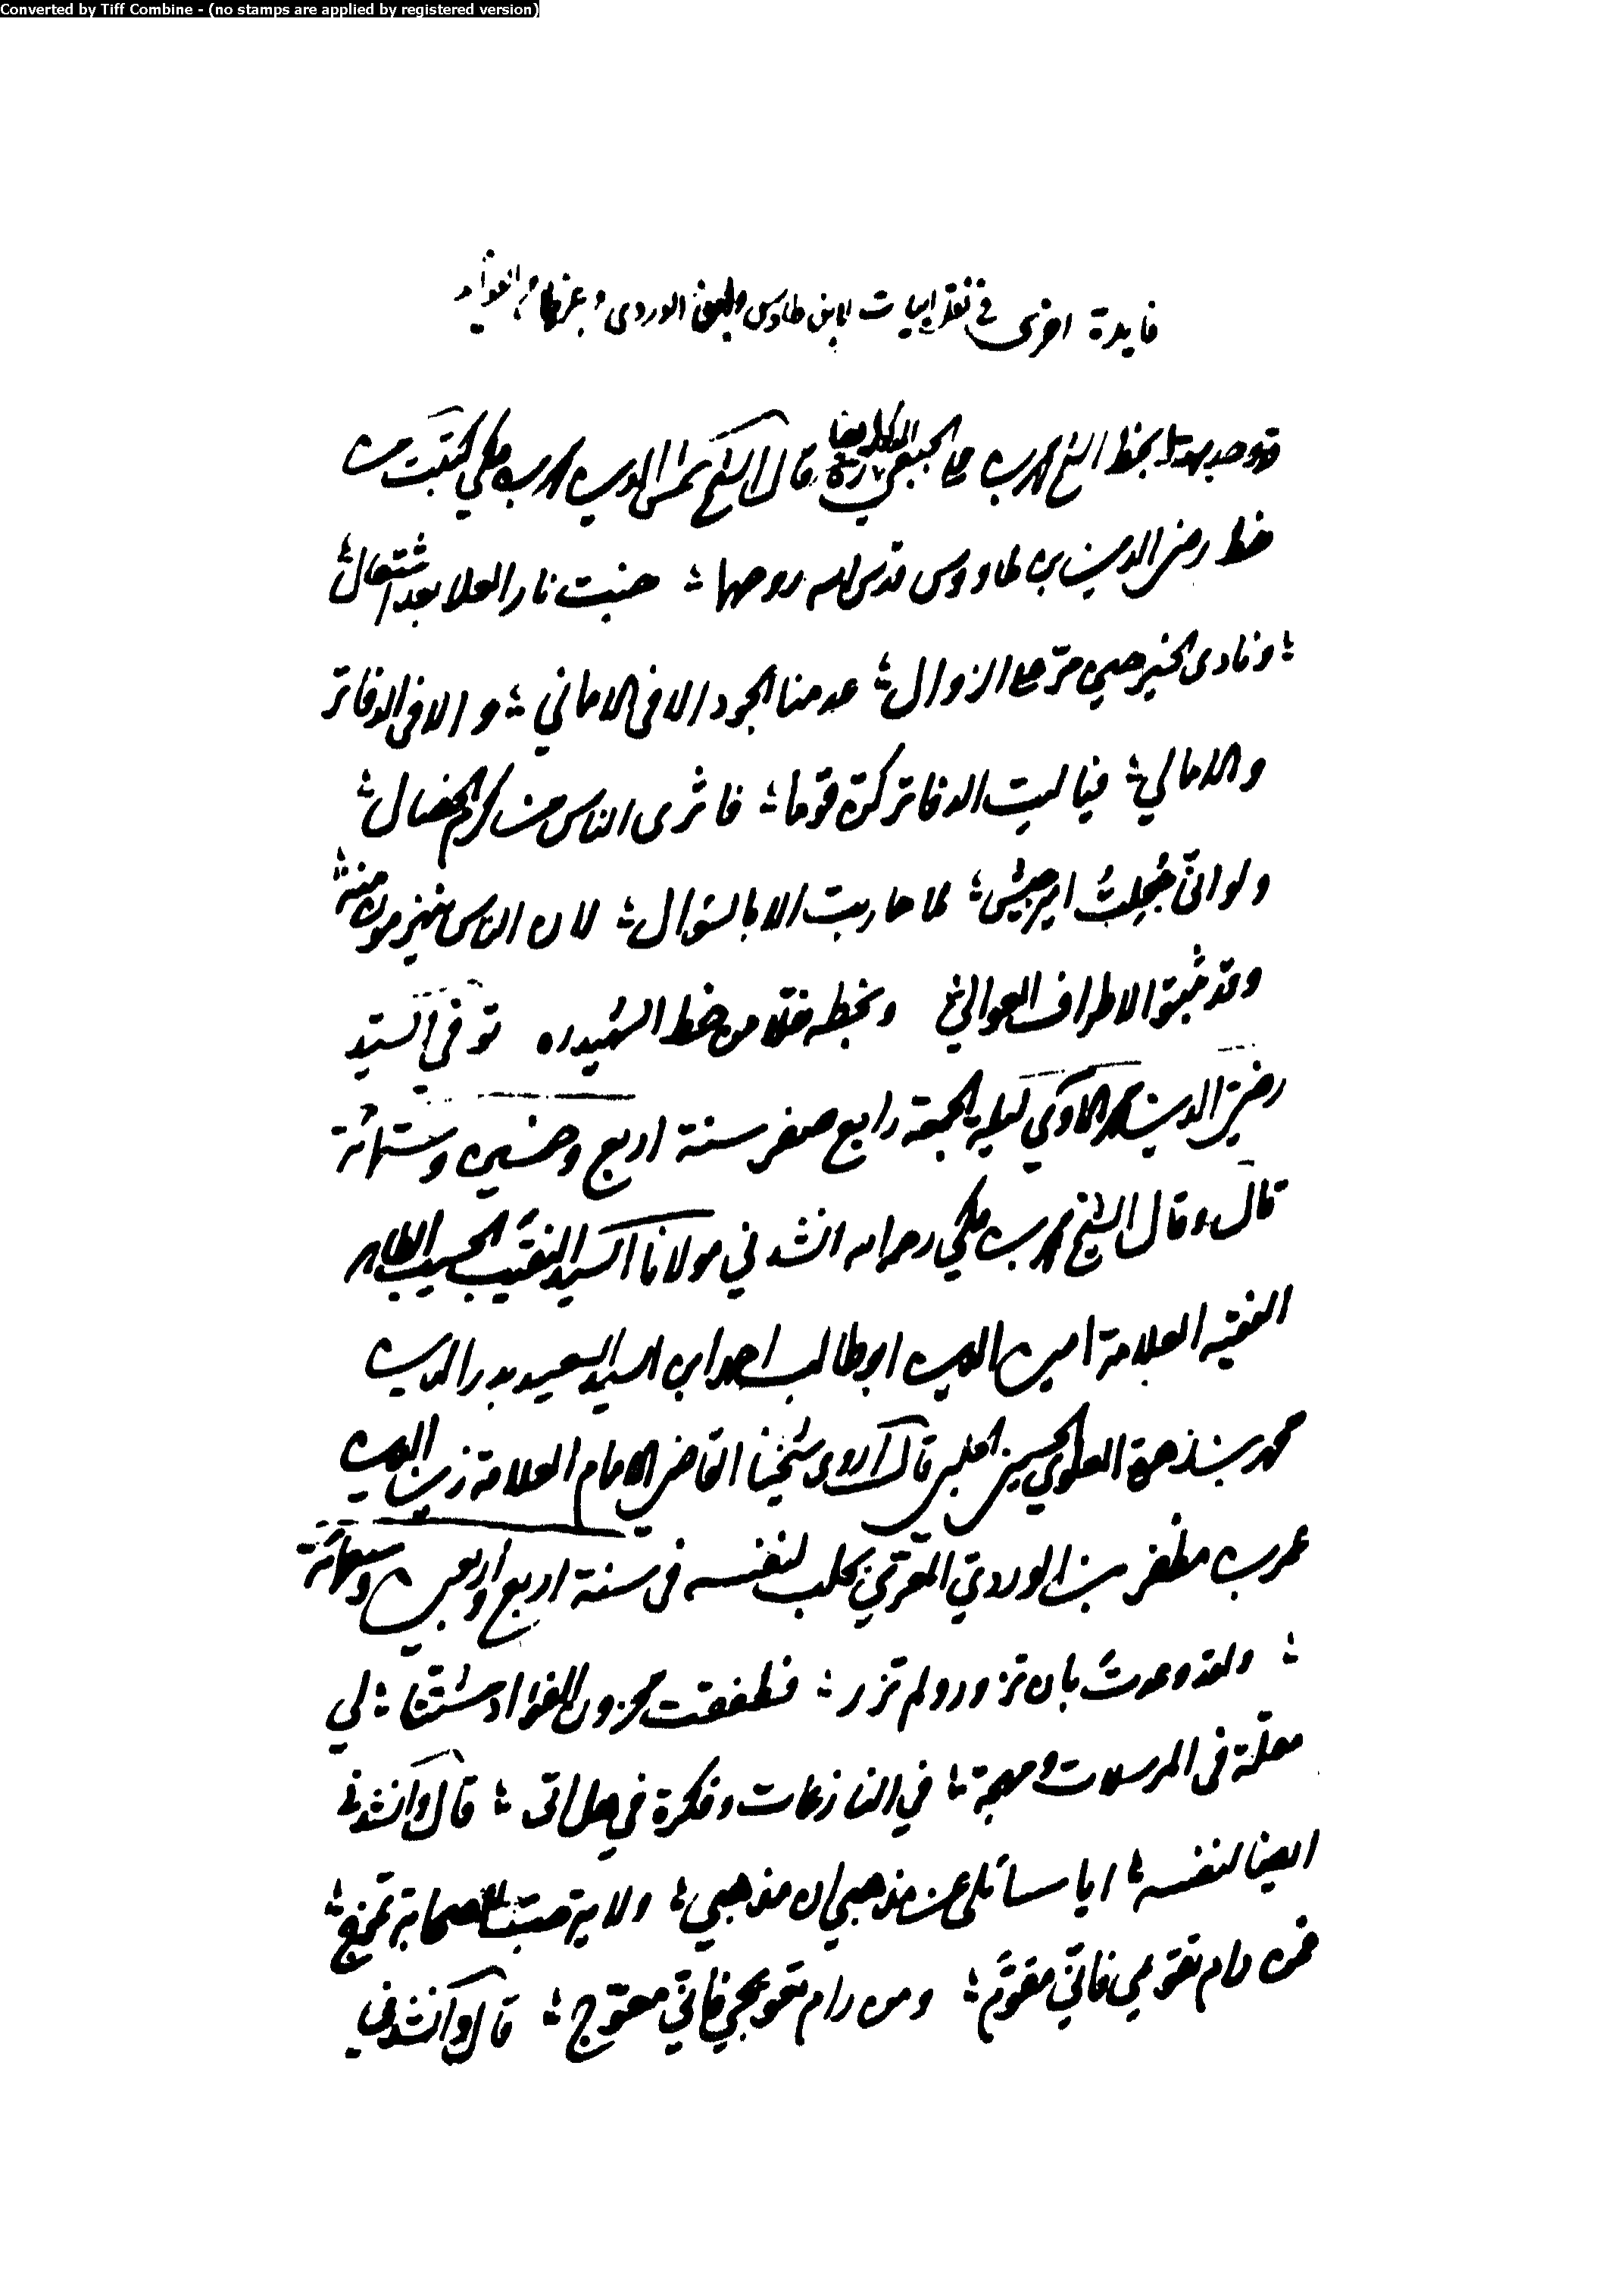 Converted by Tiff Combine - (no stamps are applied by registered version)
فايدة اخرى في نقل ابيات لابن طاوس ولابن الوردي وغيرها من الفوايد
قد وجد بخط الشيخ محمد بن علي الجبعي ره قال الشيخ شمس الدين محمد بن مكي كتبت من
خط رضي الدين بن طاووس قدس الله روحهما خبت نار العلا بعد اشتعال
ونادى الخير حي على الزوال عدمنا الجود الا في الاماني والا في الدفاتر
والامالي فيا ليت الدفاتر كن قوما فاثرى الناس من كرم الخصال
ولو اني جعلت امير جيش لما حاربت الا بالسؤال لان الناس ينهزمون منه
وقد ثبتوا لاطراف العوالي وبخطه نقلا من خط الشهيد ره توفي السيد
رضي الدين الاوي ليلة الجمعة رابع صفر سنة اربع وخمسين وستمائة
قال وقال الشيخ محمد بن مكي رحمه الله انشدني مولانا السيد النقيب الحسيب الطاهر
الفقيه العلامة امين الدين ابو طالب احمد ابن السيد السعيد بدر الدين
محمد بن زهرة العلوي الحسيني الحلبي قال شيخنا القاضي الامام العلامة زين الدين
عمر بن مظفر بن الوردي المعري بحلب لنفسه في سنة اربع واربعين وسبعمائة
ولقد وعدت بان تزور ولم تزر فطفقت محزون الفؤاد مشتتا لي
مقلة في المرسلات ومهجة في النازعات وفكرة في هل اتى قال وانشدني
ايضا لنفسه ايا سائلي عن مذهبي ان مذهبي ولاية حب للصحابة تمزج
فمن رام تقويمي فاني مقوم ومن رام تعويجي فاني معوج قال وانشدني